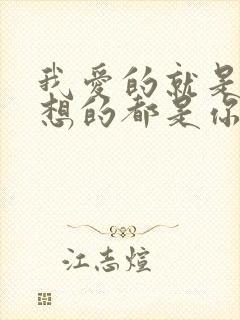 我爱的就是
想的都是你
江志煊